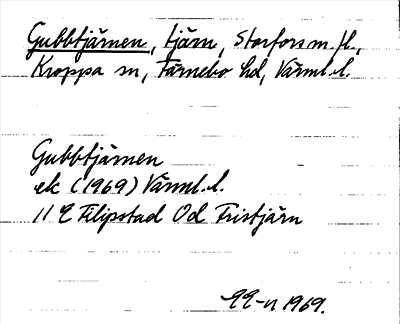 Gubbtjärnen, tjärn, Storfors m.fl.,
Kroppa sn, Färnebo hd, Värml.l.
Gubbtjärnen
ek (1969) Värml.l.
11 E Filipstad 0d Fristjärn
1969.